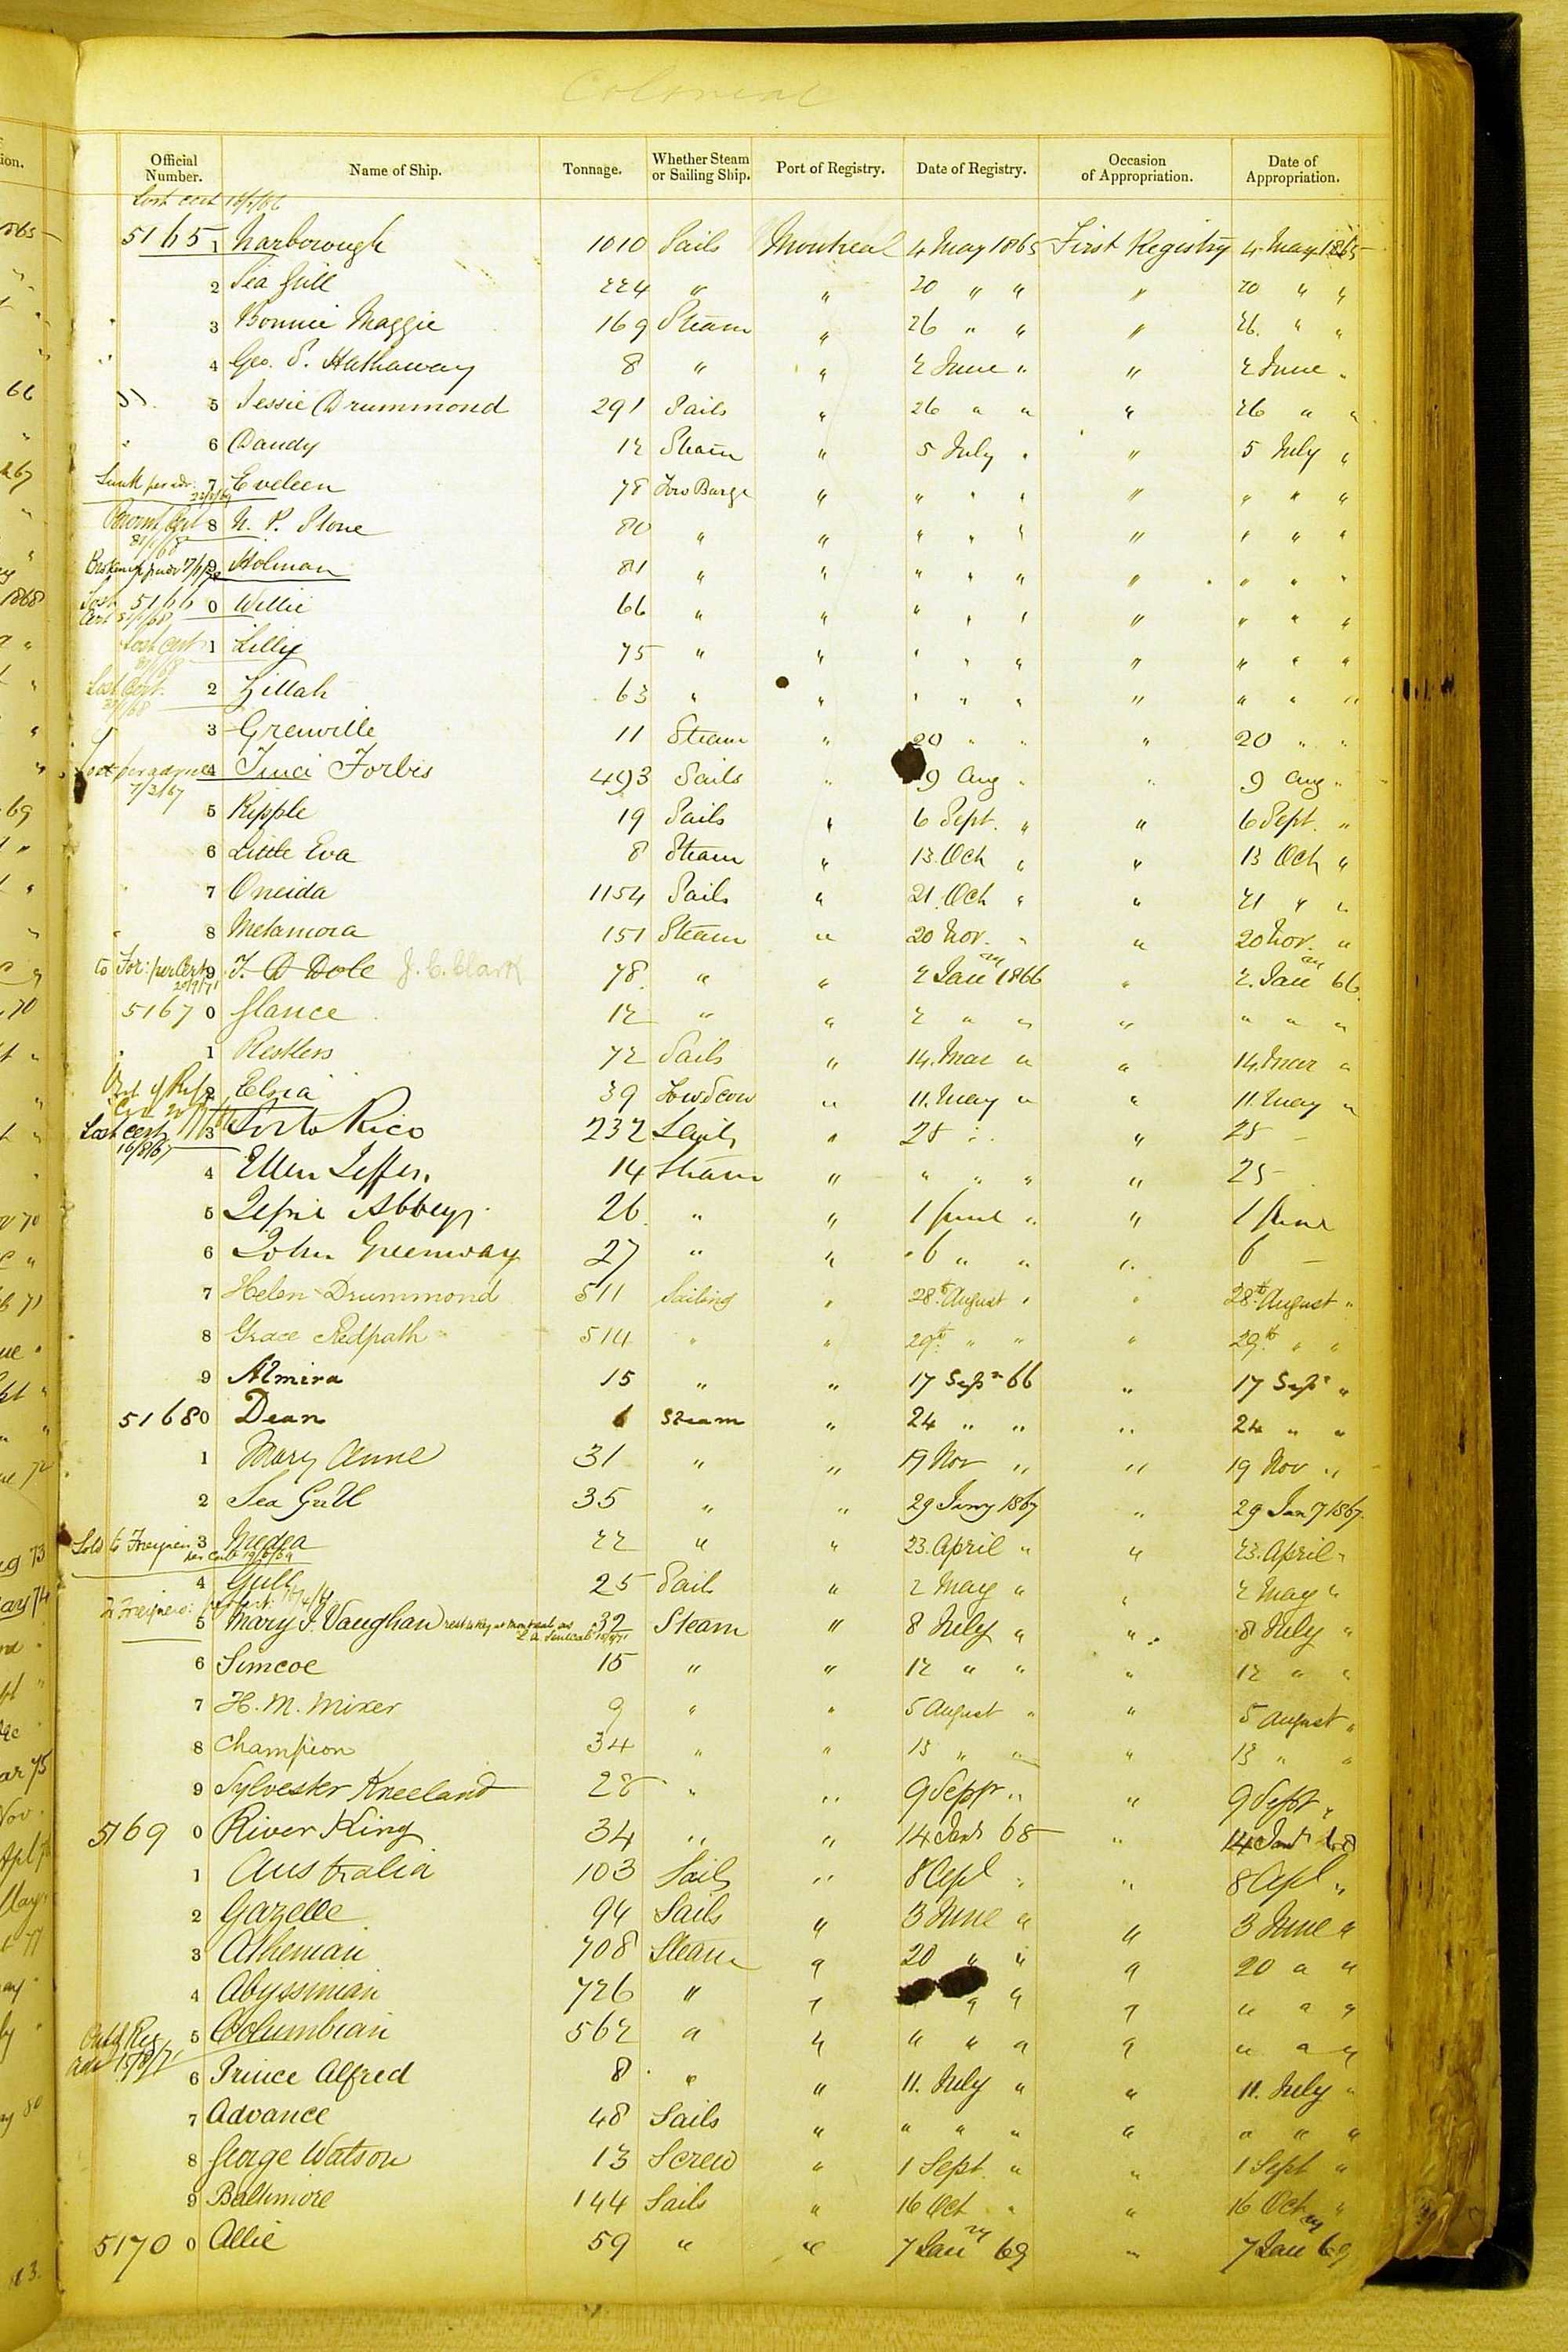 Colonial
Official Number. Name of Ship. Tonnage. Whether Steam or Sailing Ship. Port of Registry. Date of Registry. Occasion of Appropriation. Date of Appropriation.
Lost cert
5165 1 Narborough 1010 Sails Montreal 4 May 1865 First Registry 4 May 1865
2 Sea Gull 224 " " 20 " " " 20 " "
3 Bonnie Maggie 169 Steam " 26 " " " 26. " "
4 Geo. S. Hathaway 8 " " 2 June " " 2 June "
5 Jessie Drummond 291 Sails " 26 " " " 26 " "
6 Dandy 12 Steam " 5 July " " 5 July "
Sunk per adv. 7 Eveleen 78 Tow Barge " " " " " " " "
8 N. P. Stone 80 " " " " " " " " "
9 Holman 81 " " " " " " " " "
Lost Cert 5166 0 Willie 66 " " " " " " " " "
Lost Cert 1 Lilly 75 " " " " " " " " "
Lost Cert. 2 Zillah 63 " " " " " " " " "
3 Grenville 11 Steam " 20 " " " 20 " "
Lost per advice 4 493 Sails " 9 Aug " " 9 Aug "
7/3/67
5 Ripple 19 Sails " 6 Sept. " " 6 Sept. "
6 Little Eva 8 Steam " 13 Oct " " 13 Oct "
7 Oneida 1154 Sails " 21 Oct " " 21 " "
8 Metamora 151 Steam " 20 Nov. " " 20 Nov. "
to For: per Cert 9 T. D Dole J. C. Clark 78 " " 2 Jany 1866 " 2. Jany 66
5167 0 Glance 12 " " 2 " " " " " "
1 Restless 72 Sails " 14. Mar " " 14. Mar "
2 39 Tow Scow " 11. May " " 11. May "
Lost cert 3 Porto Rico 232 Sails " 25 " " 25
16/8/67
4 Ellen 14 Steam " " " " " 25
5 Jessie Abbey 26 " " 1 June " " 1 June
6 John Greenway 27 " " 6 " " " 6
7 Helen Drummond 511 Sailing " 28th August " " 28th August "
8 Grace Redpath 514 " " 29th " " " 29th " "
9 Almira 15 " " 17 Sepr 66 " 17 Sepr "
51680 Dean 6 Steam " 24 " " " 24 " "
1 Mary Anne 31 " " 19 Nov " " 19 Nov "
2 Sea Gull 35 " " 29 Jany 1867 " 29 Jany 1867.
Sold to Foreigner 3 Medea 22 " " 23. April " " 23. April "
per Cert
4 Gull 25 Sail " 2 May " " 2 May "
To Foreigners: per Cert:
5 Mary J. Vaughan 32 Steam " 8 July " " 8 July "
6 Simcoe 15 " " 12 " " " 12 " "
7 H. M. Mixer 9 " " 5 August " " 5 August "
8 Champion 34 " " 13 " " " 13 " "
9 Sylvester Kneeland 28 " " 9 Sept " " 9 Sept "
5169 0 River King 34 " " 14 Jany 68 " 14 Jany 68
1 Australia 103 Sails " 8 Apl " " 8 Apl "
2 Gazelle 94 Sails " 3 June " " 3 June "
3 Athenian 708 Steam " 20 " " " 20 " "
4 Abyssinian 726 " " " " " " " "
5 Columbian 562 " " " " " " " " "
6 Prince Alfred 8 " " 11. July " " 11. July "
7 Advance 48 Sails " " " " " " " "
8 George Watson 13 Screw " 1 Sept. " " 1 Sept "
9 Baltimore 144 Sails " 16 Oct " " 16 Oct "
5170 0 Allie 59 " " 7 Jany 69 " 7 Jany 69